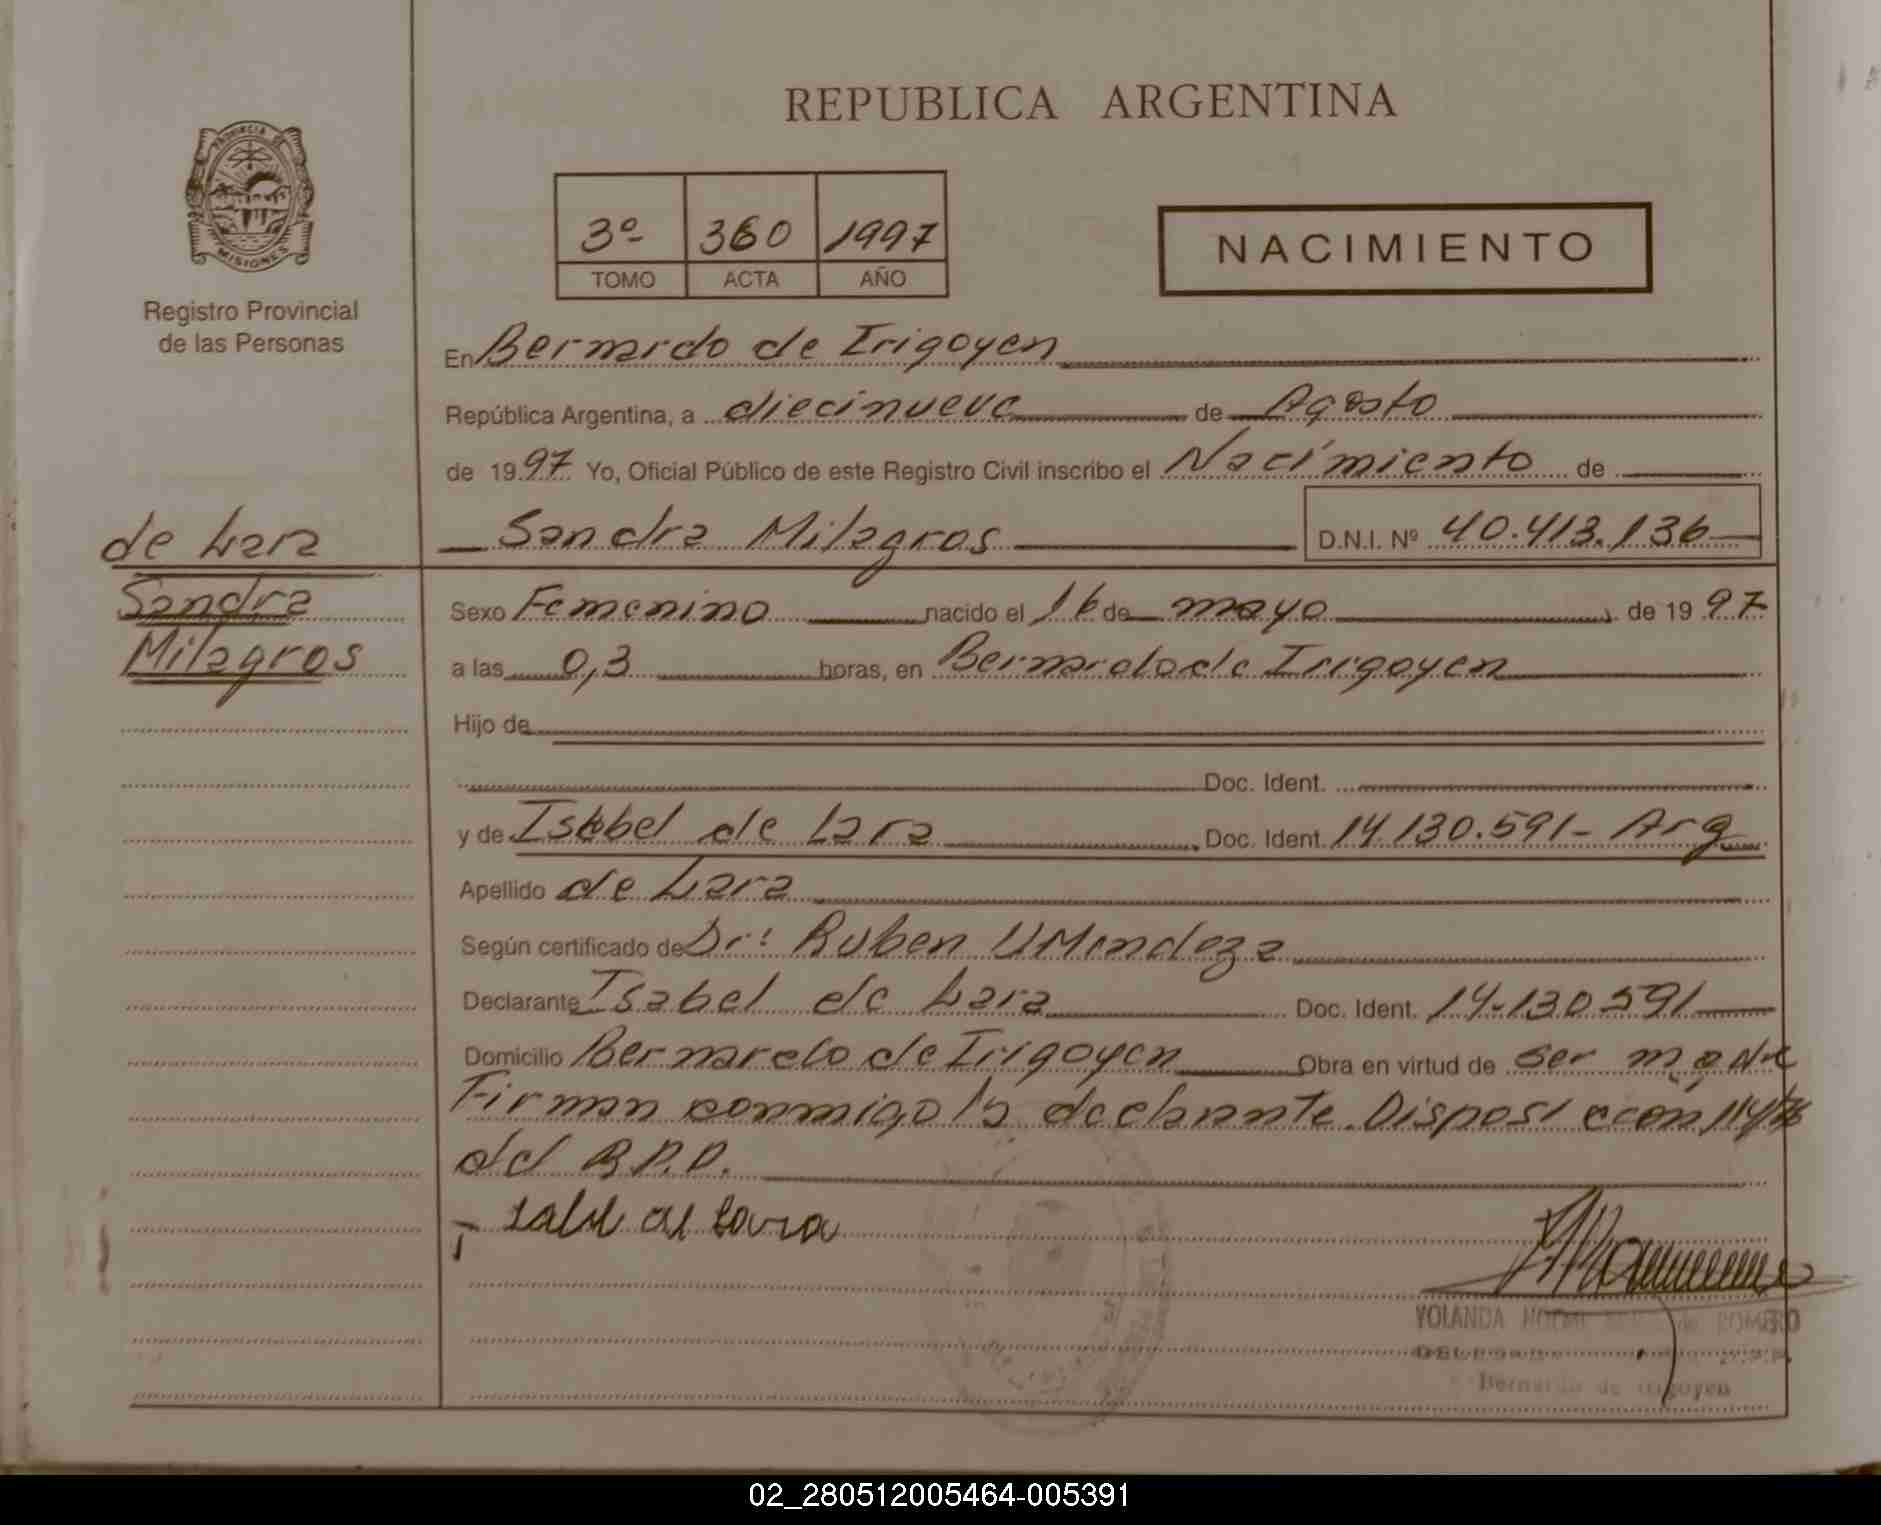 REPUBLICA ARGENTINA
PROVINCIA DE MISIONES
Registro Provincial
de las Personas
3º 360 1997
TOMO ACTA AÑO
NACIMIENTO
En Bernardo de Irigoyen
República Argentina, a diecinueve de Agosto
de 1997 Yo, Oficial Público de este Registro Civil inscribo el Nacimiento de
Sandra Milagros D.N.I. Nº 40.413.136
de Lara
Sandra
Milagros
Sexo Femenino nacido el 16 de mayo de 1997
a las 0,3 horas, en Bernardo de Irigoyen
Hijo de
Doc. Ident.
y de Isabel de Lara Doc. Ident. 14.130.591- Arg
Apellido de Lara
Según certificado de Dr: Ruben
Declarante Isabel de Lara Doc. Ident. 14.130591
Domicilio Bernardo de Irigoyen Obra en virtud de ser madre
Firman conmigo la declarante. Disposi ccion
del
YOLANDA de ROMERO
Bernardo de Irigoyen
02_280512005464-005391